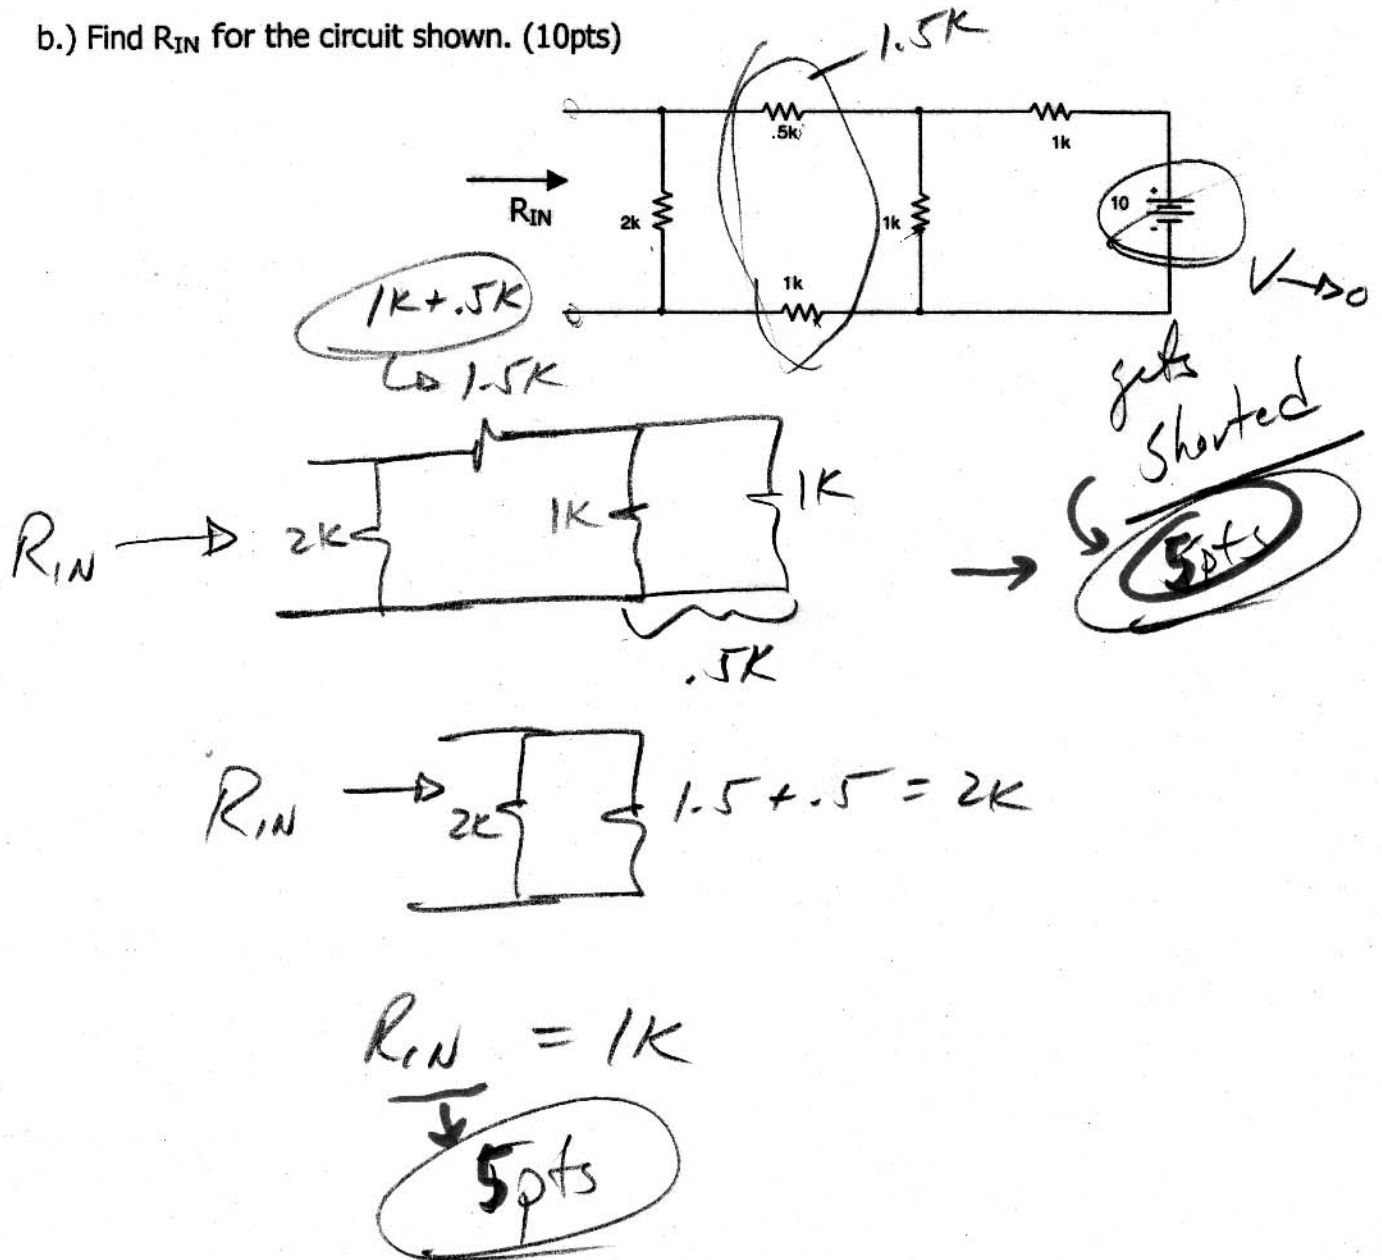 b.) Find RIN for the circuit shown. (10pts)
1.5K
.5k
1k
RIN
2k
1k
10
+
-
1k
V→0
1K+.5K
↳ 1.5K
gets
shorted
5pts
RIN →
2K
1K
1K
.5K
RIN →
2K
1.5 + .5 = 2K
RIN = 1K
5pts